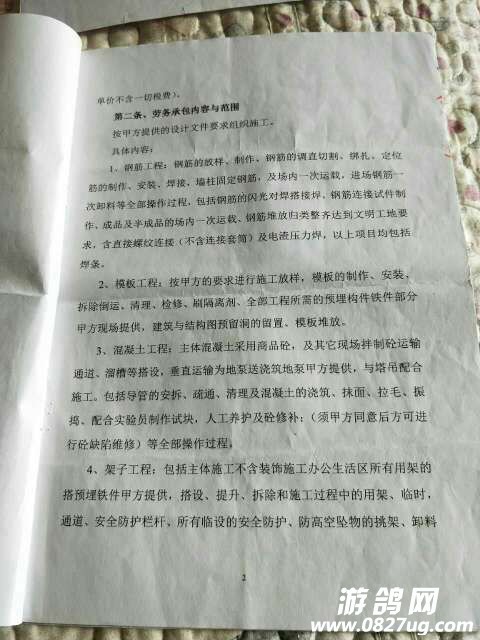 单价不含一切税费）。
第二条、劳务承包内容与范围
按甲方提供的设计文件要求组织施工。
具体内容：
1、钢筋工程：钢筋的放样、制作、钢筋的调直切割、绑扎、定位
筋的制作、安装、焊接、墙柱固定钢筋，及场内一次运载、进场钢筋一
次卸料等全部操作过程，包括钢筋的闪光对焊搭接焊、钢筋连接试件制
作、成品及半成品的场内一次运载、钢筋堆放归类整齐达到文明工地要
求，含直接螺纹连接（不含连接套筒）及电渣压力焊，以上项目均包括
焊条。
2、模板工程：按甲方的要求进行施工放样，模板的制作、安装、
拆除倒运、清理、检修、刷隔离剂、全部工程所需的预埋构件铁件部分
甲方现场提供，建筑与结构图预留洞的留置、模板堆放。
3、混凝土工程：主体混凝土采用商品砼，及其它现场拌制砼运输
通道、溜槽等搭设，垂直运输为地泵送浇筑地泵甲方提供，与塔吊配合
施工。包括导管的安拆、疏通、清理及混凝土的浇筑、抹面、拉毛、振
捣、配合实验员制作试块，人工养护及砼修补；（须甲方同意后方可进
行砼缺陷维修）等全部操作过程。
4、架子工程：包括主体施工不含装饰施工办公生活区所有用架的
搭预埋铁件甲方提供，搭设、提升、拆除和施工过程中的用架、临时，
通道、安全防护栏杆、所有临设的安全防护、防高空坠物的挑架、卸料
2
游鸽网
www.0827ug.com